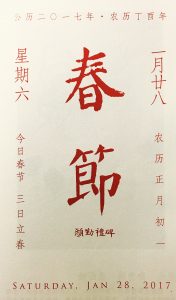 公历二〇一七年·农历丁酉年
一月廿八
星期六
春節
農历正月初一
今日春节 三日立春
顔勤禮碑
SATURDAY, JAN 28, 2017